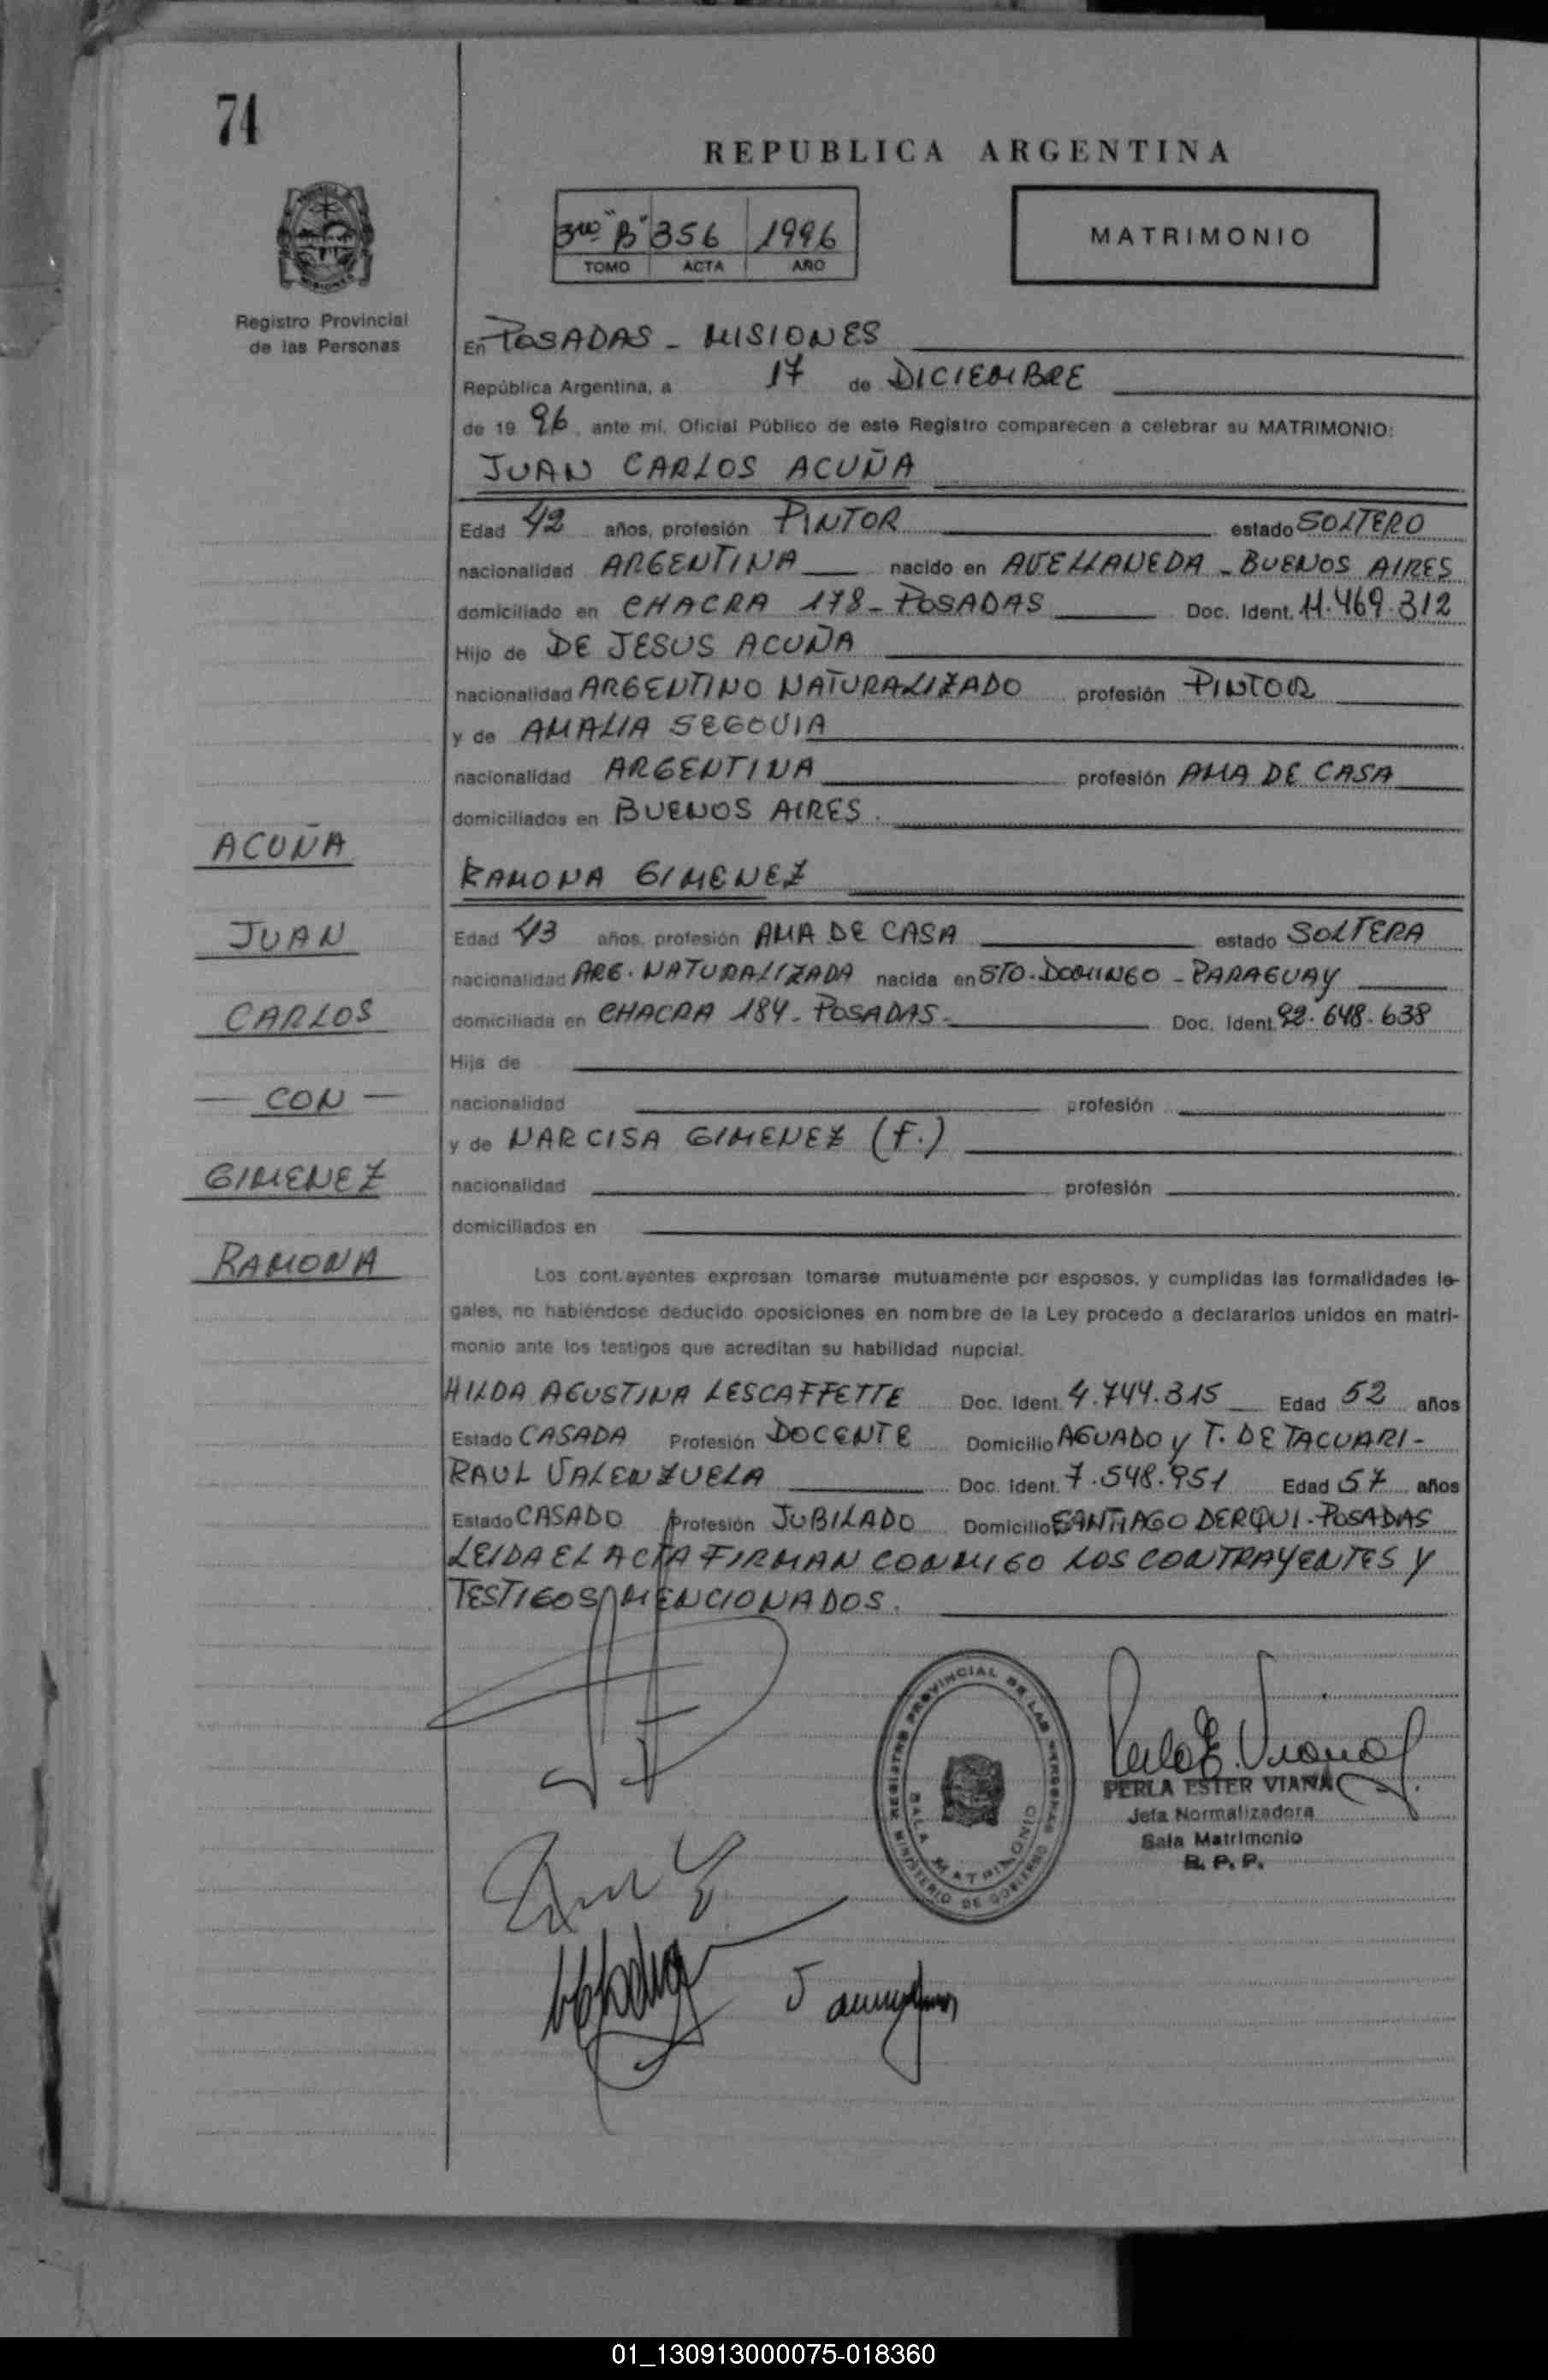 74
REPUBLICA ARGENTINA
3ro "B" 356 1996
TOMO ACTA AÑO
MATRIMONIO
Registro Provincial
de las Personas
En POSADAS - MISIONES
República Argentina, a 17 de DICIEMBRE
de 19 96 ante mí, Oficial Público de este Registro comparecen a celebrar su MATRIMONIO:
JUAN CARLOS ACUÑA
Edad 42 años, profesión PINTOR estado SOLTERO
nacionalidad ARGENTINA nacido en AVELLANEDA - BUENOS AIRES
domiciliado en CHACRA 178 - POSADAS Doc. Ident. 11.469.312
Hijo de DE JESUS ACUÑA
nacionalidad ARGENTINO NATURALIZADO profesión PINTOR
y de AMALIA SEGOVIA
nacionalidad ARGENTINA profesión AMA DE CASA
domiciliados en BUENOS AIRES.
RAMONA GIMENEZ
Edad 43 años, profesión AMA DE CASA estado SOLTERA
nacionalidad ARG. NATURALIZADA nacida en STO. DOMINGO - PARAGUAY
domiciliada en CHACRA 184 - POSADAS - Doc. Ident. 92.648.638
Hija de
nacionalidad profesión
y de NARCISA GIMENEZ (f.)
nacionalidad profesión
domiciliados en
ACUÑA
JUAN
CARLOS
— CON —
GIMENEZ
RAMONA
Los contrayentes expresan tomarse mutuamente por esposos, y cumplidas las formalidades le-
gales, no habiéndose deducido oposiciones en nombre de la Ley procedo a declararlos unidos en matri-
monio ante los testigos que acreditan su habilidad nupcial.
HILDA AGUSTINA LESCAFFETTE Doc. Ident. 4.744.315 Edad 52 años
Estado CASADA Profesión DOCENTE Domicilio AGUADO y T. DE TACUARI -
RAUL VALENZUELA Doc. Ident. 7.548.951 Edad 57 años
Estado CASADO Profesión JUBILADO Domicilio SANTIAGO DERQUI - POSADAS
LEIDA EL ACTA FIRMAN CONMIGO LOS CONTRAYENTES Y
TESTIGOS MENCIONADOS.
REGISTRO PROVINCIAL DE LAS PERSONAS
SALA MATRIMONIO
MINISTERIO DE GOBIERNO
Perla E. Viana
PERLA ESTER VIANA
Jefa Normalizadora
Sala Matrimonio
R. P. P.
01_130913000075-018360